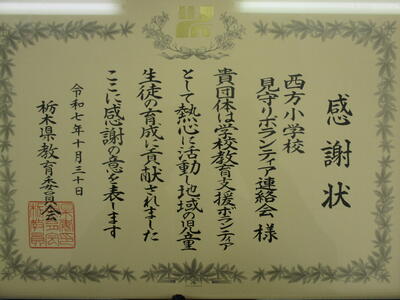 感謝状
西方小学校
見守りボランティア連絡会 様
貴団体は学校教育支援ボランティア
として熱心に活動し地域の児童
生徒の育成に貢献されました
ここに感謝の意を表します
令和七年十月三十日
栃木県教育委員会